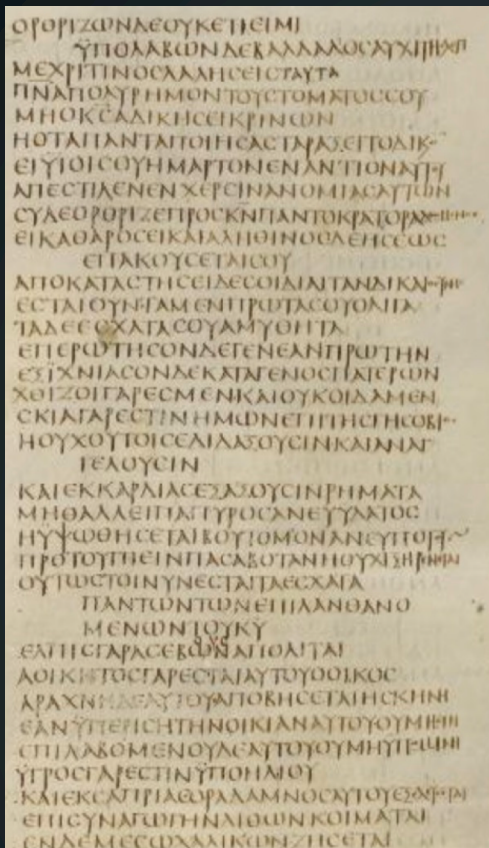 ΟΡΘΡΙΖΩΝΔΕΟΥΚΕΤΙΕΙΜΙ
ΫΠΟΛΑΒΩΝΔΕΒΑΛΔΑΔΟΣΑΥΧΙ
ΜΕΧΡΙΤΙΝΟΣΛΑΛΗΣΕΙΣΤΑΥΤΑ
ΠΝΑΠΟΛΥΡΗΜΟΝΤΟΥΣΤΟΜΑΤΟΣΣΟΥ
ΜΗΟΚΣΑΔΙΚΗΣΕΙΚΡΙΝΩΝ
ΗΟΤΑΠΑΝΤΑΠΟΙΗΣΑΣΤΑΡΑΞΕΙΤΟΔΙΚ
ΕΙΫΙΟΙΣΟΥΗΜΑΡΤΟΝΕΝΑΝΤΙΟΝΑΥΤ
ΑΠΕΣΤΙΛΕΝΕΝΧΕΡΣΙΝΑΝΟΜΙΑΣΑΥΤΩΝ
ΣΥΔΕΟΡΘΡΙΖΕΠΡΟΣΚΝΠΑΝΤΟΚΡΑΤΟΡΑ
ΕΙΚΑΘΑΡΟΣΕΙΚΑΙΑΛΗΘΙΝΟΣΔΕΗΣΕΩΣ
ΕΠΑΚΟΥΣΕΤΑΙΣΟΥ
ΑΠΟΚΑΤΑΣΤΗΣΕΙΔΕΣΟΙΔΙΑΙΤΑΝΔΙΚΑΙ
ΕΣΤΑΙΟΥΝΤΑΜΕΝΠΡΩΤΑΣΟΥΟΛΙΓΑ
ΤΑΔΕΕΣΧΑΤΑΣΟΥΑΜΥΘΗΤΑ
ΕΠΕΡΩΤΗΣΟΝΔΕΓΕΝΕΑΝΠΡΩΤΗΝ
ΕΞΙΧΝΙΑΣΟΝΔΕΚΑΤΑΓΕΝΟΣΠΑΤΕΡΩΝ
ΧΘΙΖΟΙΓΑΡΕΣΜΕΝΚΑΙΟΥΚΟΙΔΑΜΕΝ
ΣΚΙΑΓΑΡΕΣΤΙΝΗΜΩΝΕΠΙΤΗΣΓΗΣΟΒΙ
ΗΟΥΧΟΥΤΟΙΣΕΔΙΔΑΞΟΥΣΙΝΚΑΙΑΝΑΓ
ΓΕΛΟΥΣΙΝ
ΚΑΙΕΚΚΑΡΔΙΑΣΕΞΑΞΟΥΣΙΝΡΗΜΑΤΑ
ΜΗΘΑΛΛΕΙΠΑΠΥΡΟΣΑΝΕΥΥΔΑΤΟΣ
ΗΫΨΩΘΗΣΕΤΑΙΒΟΥΤΟΜΟΝΑΝΕΥΠΟΤ
ΠΡΟΤΟΥΠΙΕΙΝΠΑΣΑΒΟΤΑΝΗΟΥΧΙΞΗΡ
ΟΥΤΩΣΤΟΙΝΥΝΕΣΤΑΙΤΑΕΣΧΑΤΑ
ΠΑΝΤΩΝΤΩΝΕΠΙΛΑΝΘΑΝΟ
ΜΕΝΩΝΤΟΥΚΥ
ΕΛΠΙΣΓΑΡΑΣΕΒΟΥΣΑΠΟΛΙΤΑΙ
ΑΟΙΚΗΤΟΣΓΑΡΕΣΤΑΙΑΥΤΟΥΟΟΙΚΟΣ
ΑΡΑΧΝΗΔΕΑΥΤΟΥΑΠΟΒΗΣΕΤΑΙΗΣΚΗΝΗ
ΕΑΝΫΠΕΡΙΣΗΤΗΝΟΙΚΙΑΝΑΥΤΟΥΟΥΜΗ
ΕΠΙΛΑΒΟΜΕΝΟΥΔΕΑΥΤΟΥΟΥΜΗΥΠΟΜΙΝΗ
ΫΓΡΟΣΓΑΡΕΣΤΙΝΫΠΟΗΛΙΟΥ
ΚΑΙΕΚΣΑΠΡΙΑΣΟΡΑΔΑΜΝΟΣΑΥΤΟΥ
ΕΠΙΣΥΝΑΓΩΓΗΝΛΙΘΩΝΚΟΙΜΑΤΑΙ
ΕΝΔΕΜΕΣΩΧΑΛΙΚΩΝΖΗΣΕΤΑΙ